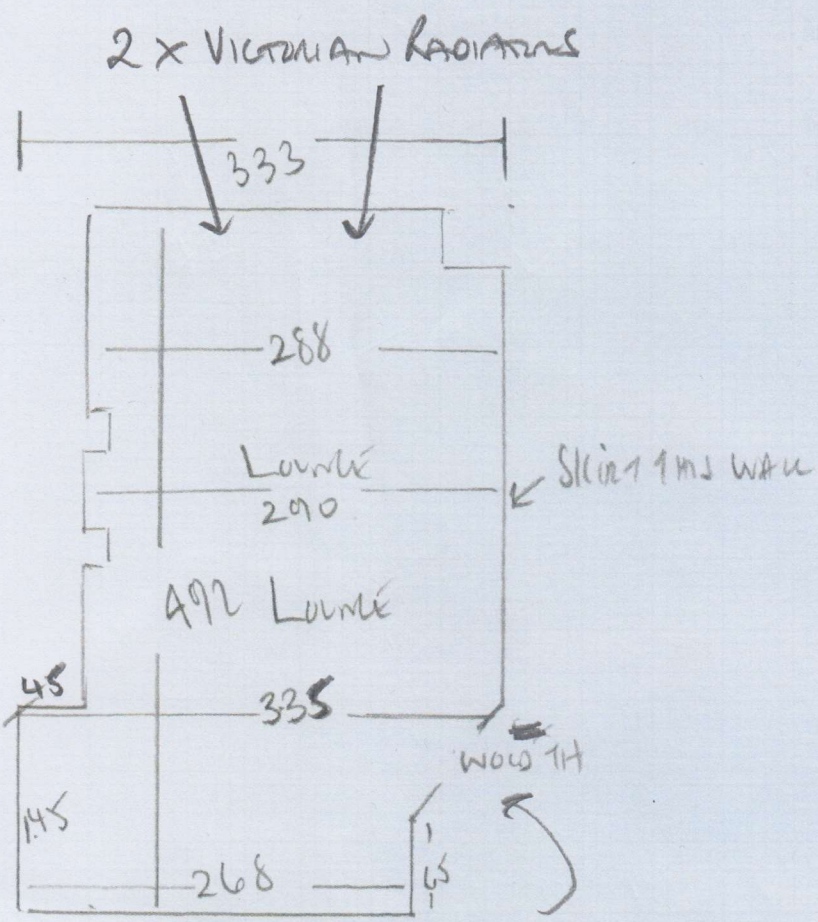 2 X VICTORIAN RADIATORS
333
288
LOUNGE
SKIRT THIS WALL
290
492 LOUNGE
45
335
WOOD TH
145
268